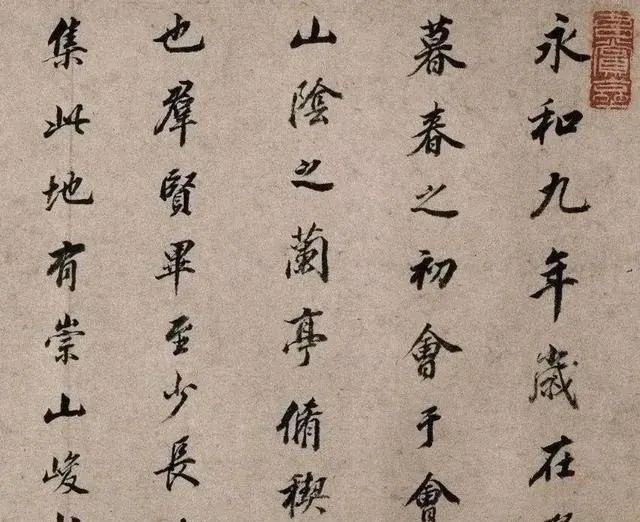 永和九年歲在
暮春之初會于會
山陰之蘭亭脩稧
也羣賢畢至少長
集此地有崇山峻